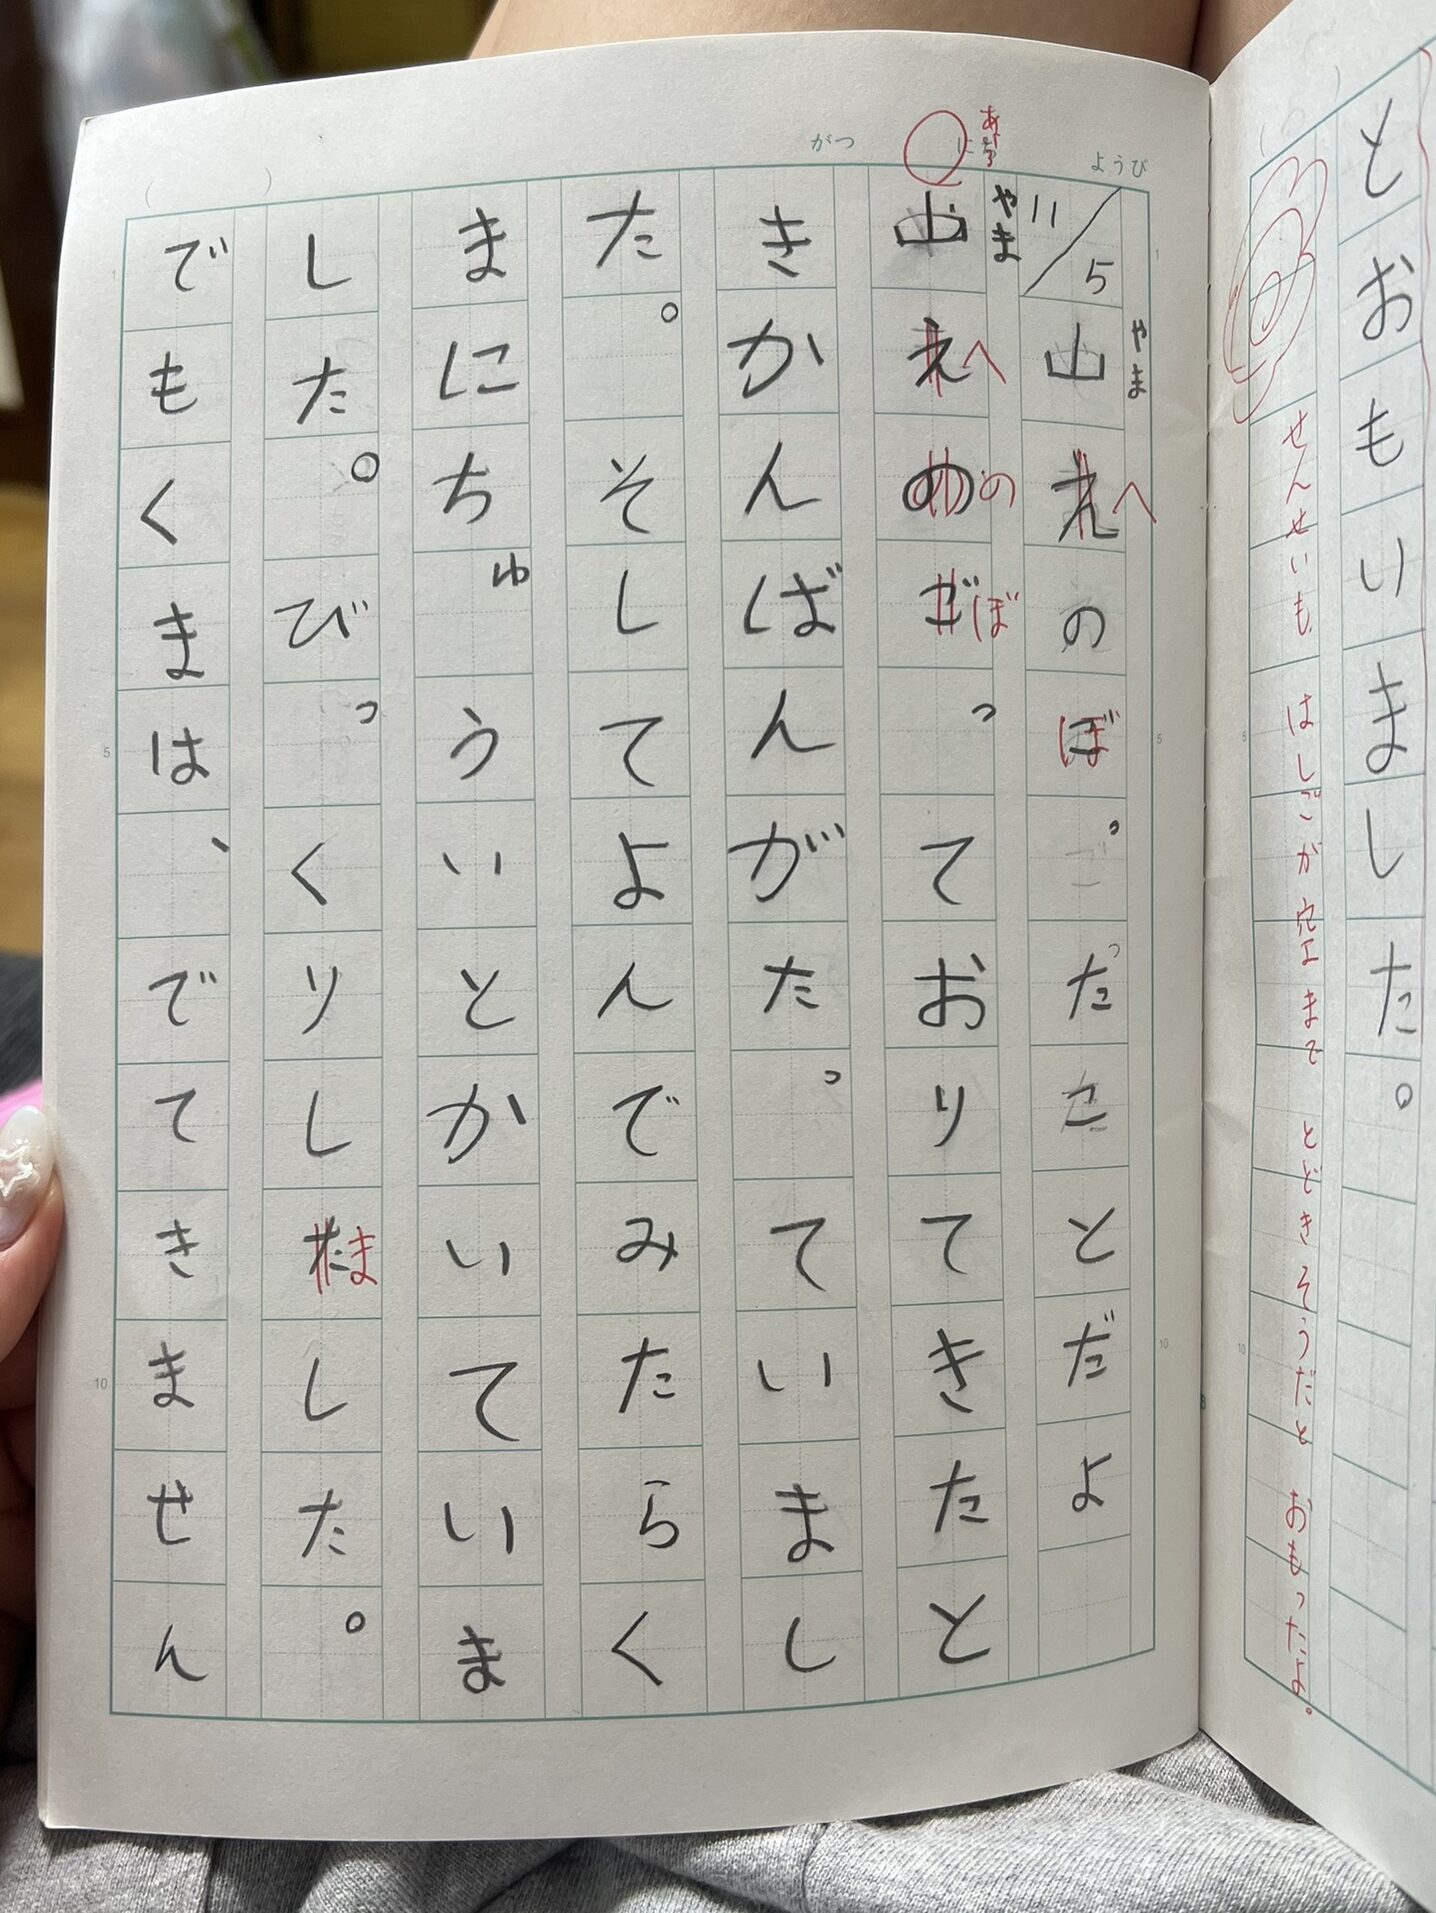 とおもいました。
せんせいも はしごが空まで とどきそうだと おもったよ。
ようび
にち
がつ
やま
11/5 山えのぼったことだよ
へ
ぼ
やま
山えのぼっておりてきたと
へ
の
ぼ
きかんばんがたっていまし
た。そしてよんでみたらく
まにちゅういとかいていま
した。びっくりしたした。
ま
でもくまは、でてきません